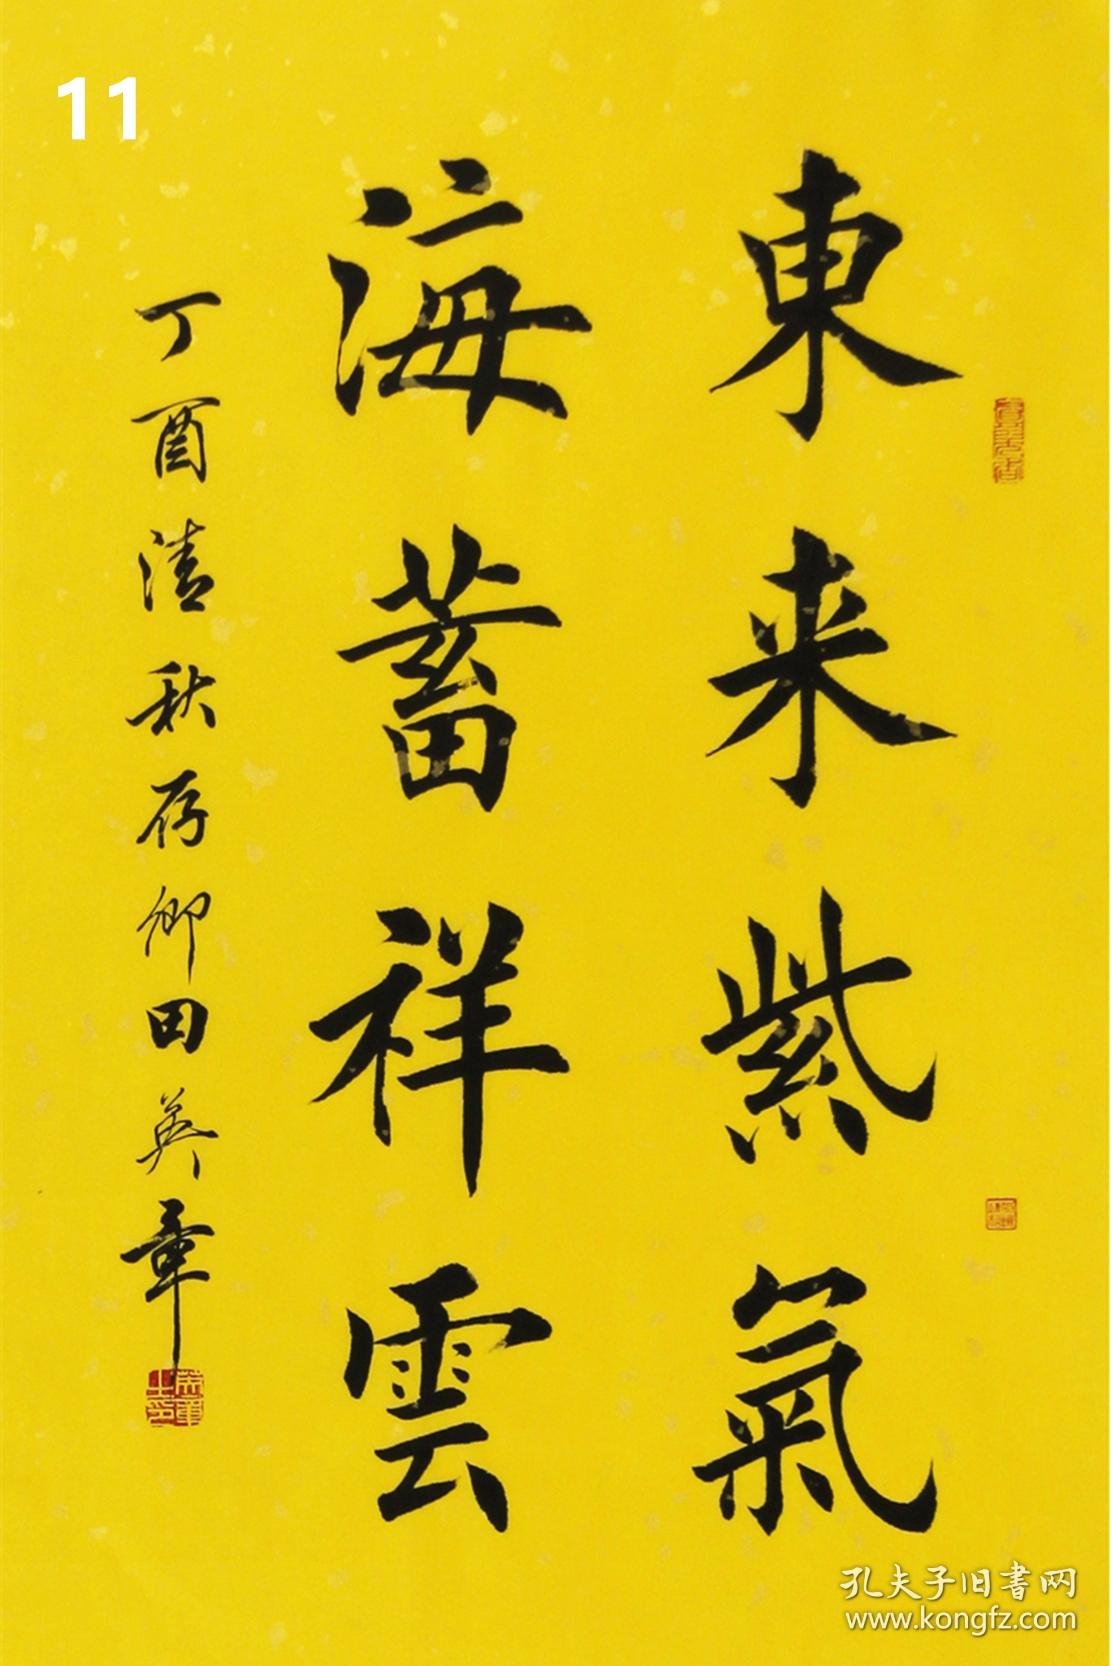 11
東来紫氣
海蓄祥雲
丁酉清秋存卿田英章
孔夫子旧書网
www.kongfz.com